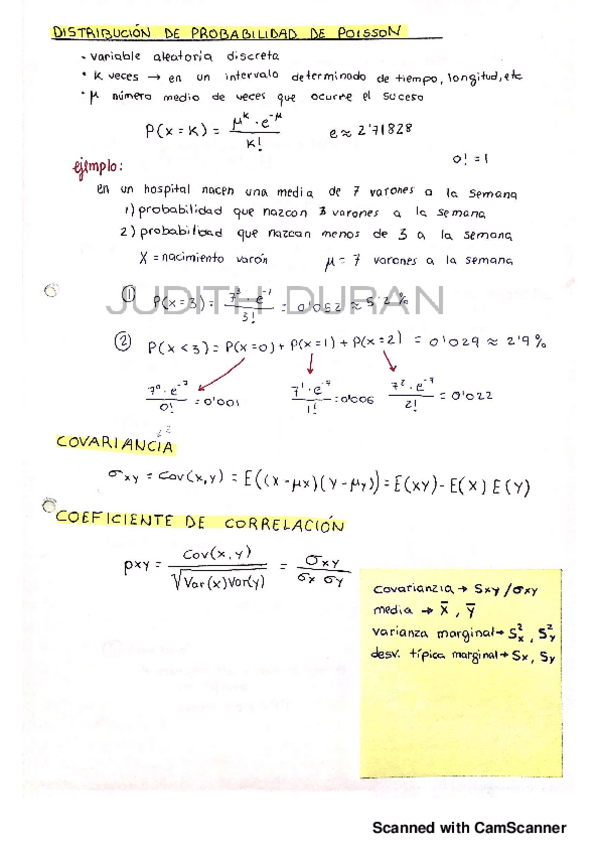 DISTRIBUCIÓN DE PROBABILIDAD DE POISSON
· variable aleatoria discreta
· K veces → en un intervalo determinado de tiempo, longitud, etc
· μ número medio de veces que ocurre el suceso
P(x = K) = μ^K · e^-μ / K!    e ≈ 2'71828
0! = 1
ejemplo:
en un hospital nacen una media de 7 varones a la semana
1) probabilidad que nazcan 3 varones a la semana
2) probabilidad que nazcan menos de 3 a la semana
X = nacimiento varón    μ = 7 varones a la semana
JUDITH DURAN
① P(x = 3) = 7^3 · e^-7 / 3! = 0'052 ≈ 5'2 %
② P(x < 3) = P(x = 0) + P(x = 1) + P(x = 2) = 0'029 ≈ 2'9 %
7^0 · e^-7 / 0! = 0'001    7^1 · e^-7 / 1! = 0'006    7^2 · e^-7 / 2! = 0'022
COVARIANCIA
σxy = Cov(x,y) = E((x - μx)(y - μy)) = E(xy) - E(x) E(y)
COEFICIENTE DE CORRELACIÓN
ρxy = Cov(x,y) / √Var(x)Var(y) = σxy / σx σy
covarianzia → Sxy / σxy
media → x̄, ȳ
varianza marginal → S²x, S²y
desv. típica marginal → Sx, Sy
Scanned with CamScanner